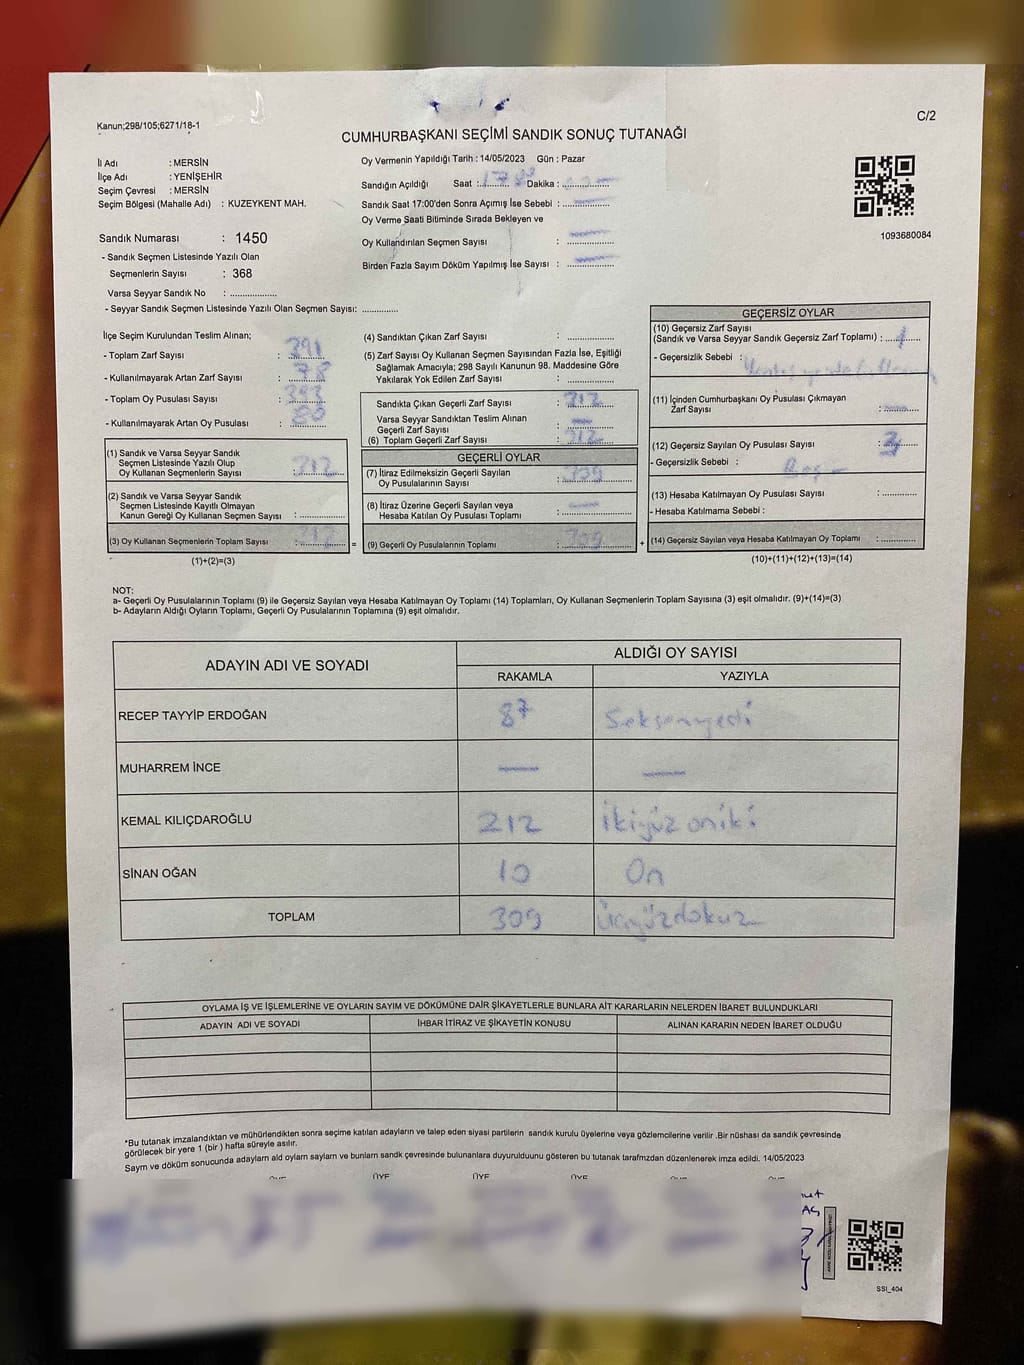 Kanun;298/105;6271/18-1
C/2
CUMHURBAŞKANI SEÇİMİ SANDIK SONUÇ TUTANAĞI
İl Adı : MERSİN
İlçe Adı : YENİŞEHİR
Seçim Çevresi : MERSİN
Seçim Bölgesi (Mahalle Adı) : KUZEYKENT MAH.
Oy Vermenin Yapıldığı Tarih : 14/05/2023 Gün : Pazar
Sandığın Açıldığı Saat : Dakika :
Sandık Saat 17:00'den Sonra Açımış İse Sebebi :
Oy Verme Saati Bitiminde Sırada Bekleyen ve
Oy Kullandırılan Seçmen Sayısı :
Birden Fazla Sayım Döküm Yapılmış İse Sayısı :
1093680084
Sandık Numarası : 1450
- Sandık Seçmen Listesinde Yazılı Olan
Seçmenlerin Sayısı : 368
Varsa Seyyar Sandık No :
- Seyyar Sandık Seçmen Listesinde Yazılı Olan Seçmen Sayısı:
İlçe Seçim Kurulundan Teslim Alınan;
- Toplam Zarf Sayısı : 391
- Kullanılmayarak Artan Zarf Sayısı : 78
- Toplam Oy Pusulası Sayısı : 393
- Kullanılmayarak Artan Oy Pusulası : 80
(1) Sandık ve Varsa Seyyar Sandık
Seçmen Listesinde Yazılı Olup
Oy Kullanan Seçmenlerin Sayısı :
(2) Sandık ve Varsa Seyyar Sandık
Seçmen Listesinde Kayıtlı Olmayan
Kanun Gereği Oy Kullanan Seçmen Sayısı :
(3) Oy Kullanan Seçmenlerin Toplam Sayısı :
(1)+(2)=(3)
(4) Sandıktan Çıkan Zarf Sayısı :
(5) Zarf Sayısı Oy Kullanan Seçmen Sayısından Fazla İse, Eşitliği
Sağlamak Amacıyla; 298 Sayılı Kanunun 98. Maddesine Göre
Yakılarak Yok Edilen Zarf Sayısı :
Sandıkta Çıkan Geçerli Zarf Sayısı :
Varsa Seyyar Sandıktan Teslim Alınan
Geçerli Zarf Sayısı :
(6) Toplam Geçerli Zarf Sayısı :
GEÇERLİ OYLAR
(7) İtiraz Edilmeksizin Geçerli Sayılan
Oy Pusulalarının Sayısı : 309
(8) İtiraz Üzerine Geçerli Sayılan veya
Hesaba Katılan Oy Pusulası Toplamı :
(9) Geçerli Oy Pusulalarının Toplamı : 309
GEÇERSİZ OYLAR
(10) Geçersiz Zarf Sayısı
(Sandık ve Varsa Seyyar Sandık Geçersiz Zarf Toplamı) : 1
- Geçersizlik Sebebi :
(11) İçinden Cumhurbaşkanı Oy Pusulası Çıkmayan
Zarf Sayısı :
(12) Geçersiz Sayılan Oy Pusulası Sayısı : 3
- Geçersizlik Sebebi : Boş
(13) Hesaba Katılmayan Oy Pusulası Sayısı :
- Hesaba Katılmama Sebebi :
(14) Geçersiz Sayılan veya Hesaba Katılmayan Oy Toplamı :
(10)+(11)+(12)+(13)=(14)
NOT:
a- Geçerli Oy Pusulalarının Toplamı (9) ile Geçersiz Sayılan veya Hesaba Katılmayan Oy Toplamı (14) Toplamları, Oy Kullanan Seçmenlerin Toplam Sayısına (3) eşit olmalıdır. (9)+(14)=(3)
b- Adayların Aldığı Oyların Toplamı, Geçerli Oy Pusulalarının Toplamına (9) eşit olmalıdır.
ADAYIN ADI VE SOYADI ALDIĞI OY SAYISI
RAKAMLA YAZIYLA
RECEP TAYYİP ERDOĞAN 87 Seksenyedi
MUHARREM İNCE
KEMAL KILIÇDAROĞLU 212 İkiyüz oniki
SİNAN OĞAN 10 On
TOPLAM 309 Üçyüzdokuz
OYLAMA İŞ VE İŞLEMLERİNE VE OYLARIN SAYIM VE DÖKÜMÜNE DAİR ŞİKAYETLERLE BUNLARA AİT KARARLARIN NELERDEN İBARET BULUNDUKLARI
ADAYIN ADI VE SOYADI İHBAR İTİRAZ VE ŞİKAYETİN KONUSU ALINAN KARARIN NEDEN İBARET OLDUĞU
*Bu tutanak imzalandıktan ve mühürlendikten sonra seçime katılan adayların ve talep eden siyasi partilerin sandık kurulu üyelerine veya gözlemcilerine verilir .Bir nüshası da sandık çevresinde
görülecek bir yere 1 (bir ) hafta süreyle asılır.
Sayım ve döküm sonucunda adayların ald oyların sayların ve bunların sandk çevresinde bulunanlara duyurulduunu gösteren bu tutanak tarafmzdan düzenlenerek imza edildi. 14/05/2023
ÜYE ÜYE ÜYE
SSI_404